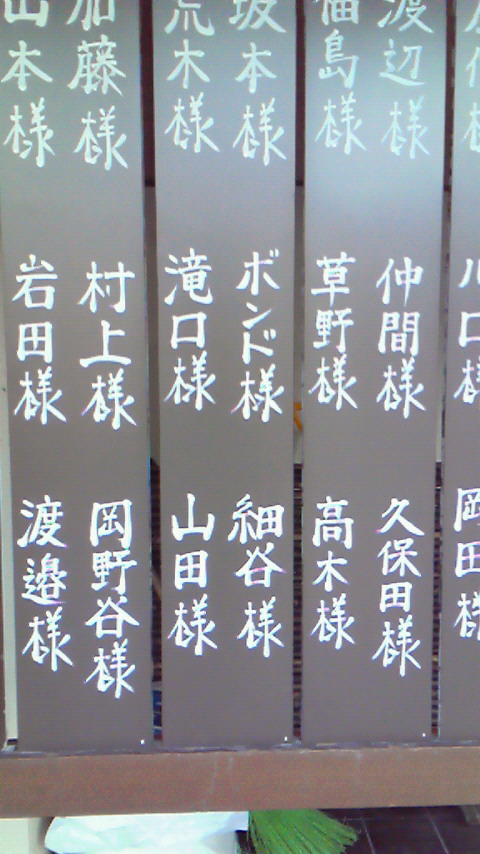 渡辺様
仲間様
久保田様
福島様
草野様
高木様
坂本様
ボンド様
細谷様
荒木様
滝口様
山田様
加藤様
村上様
岡野谷様
山本様
岩田様
渡邉様